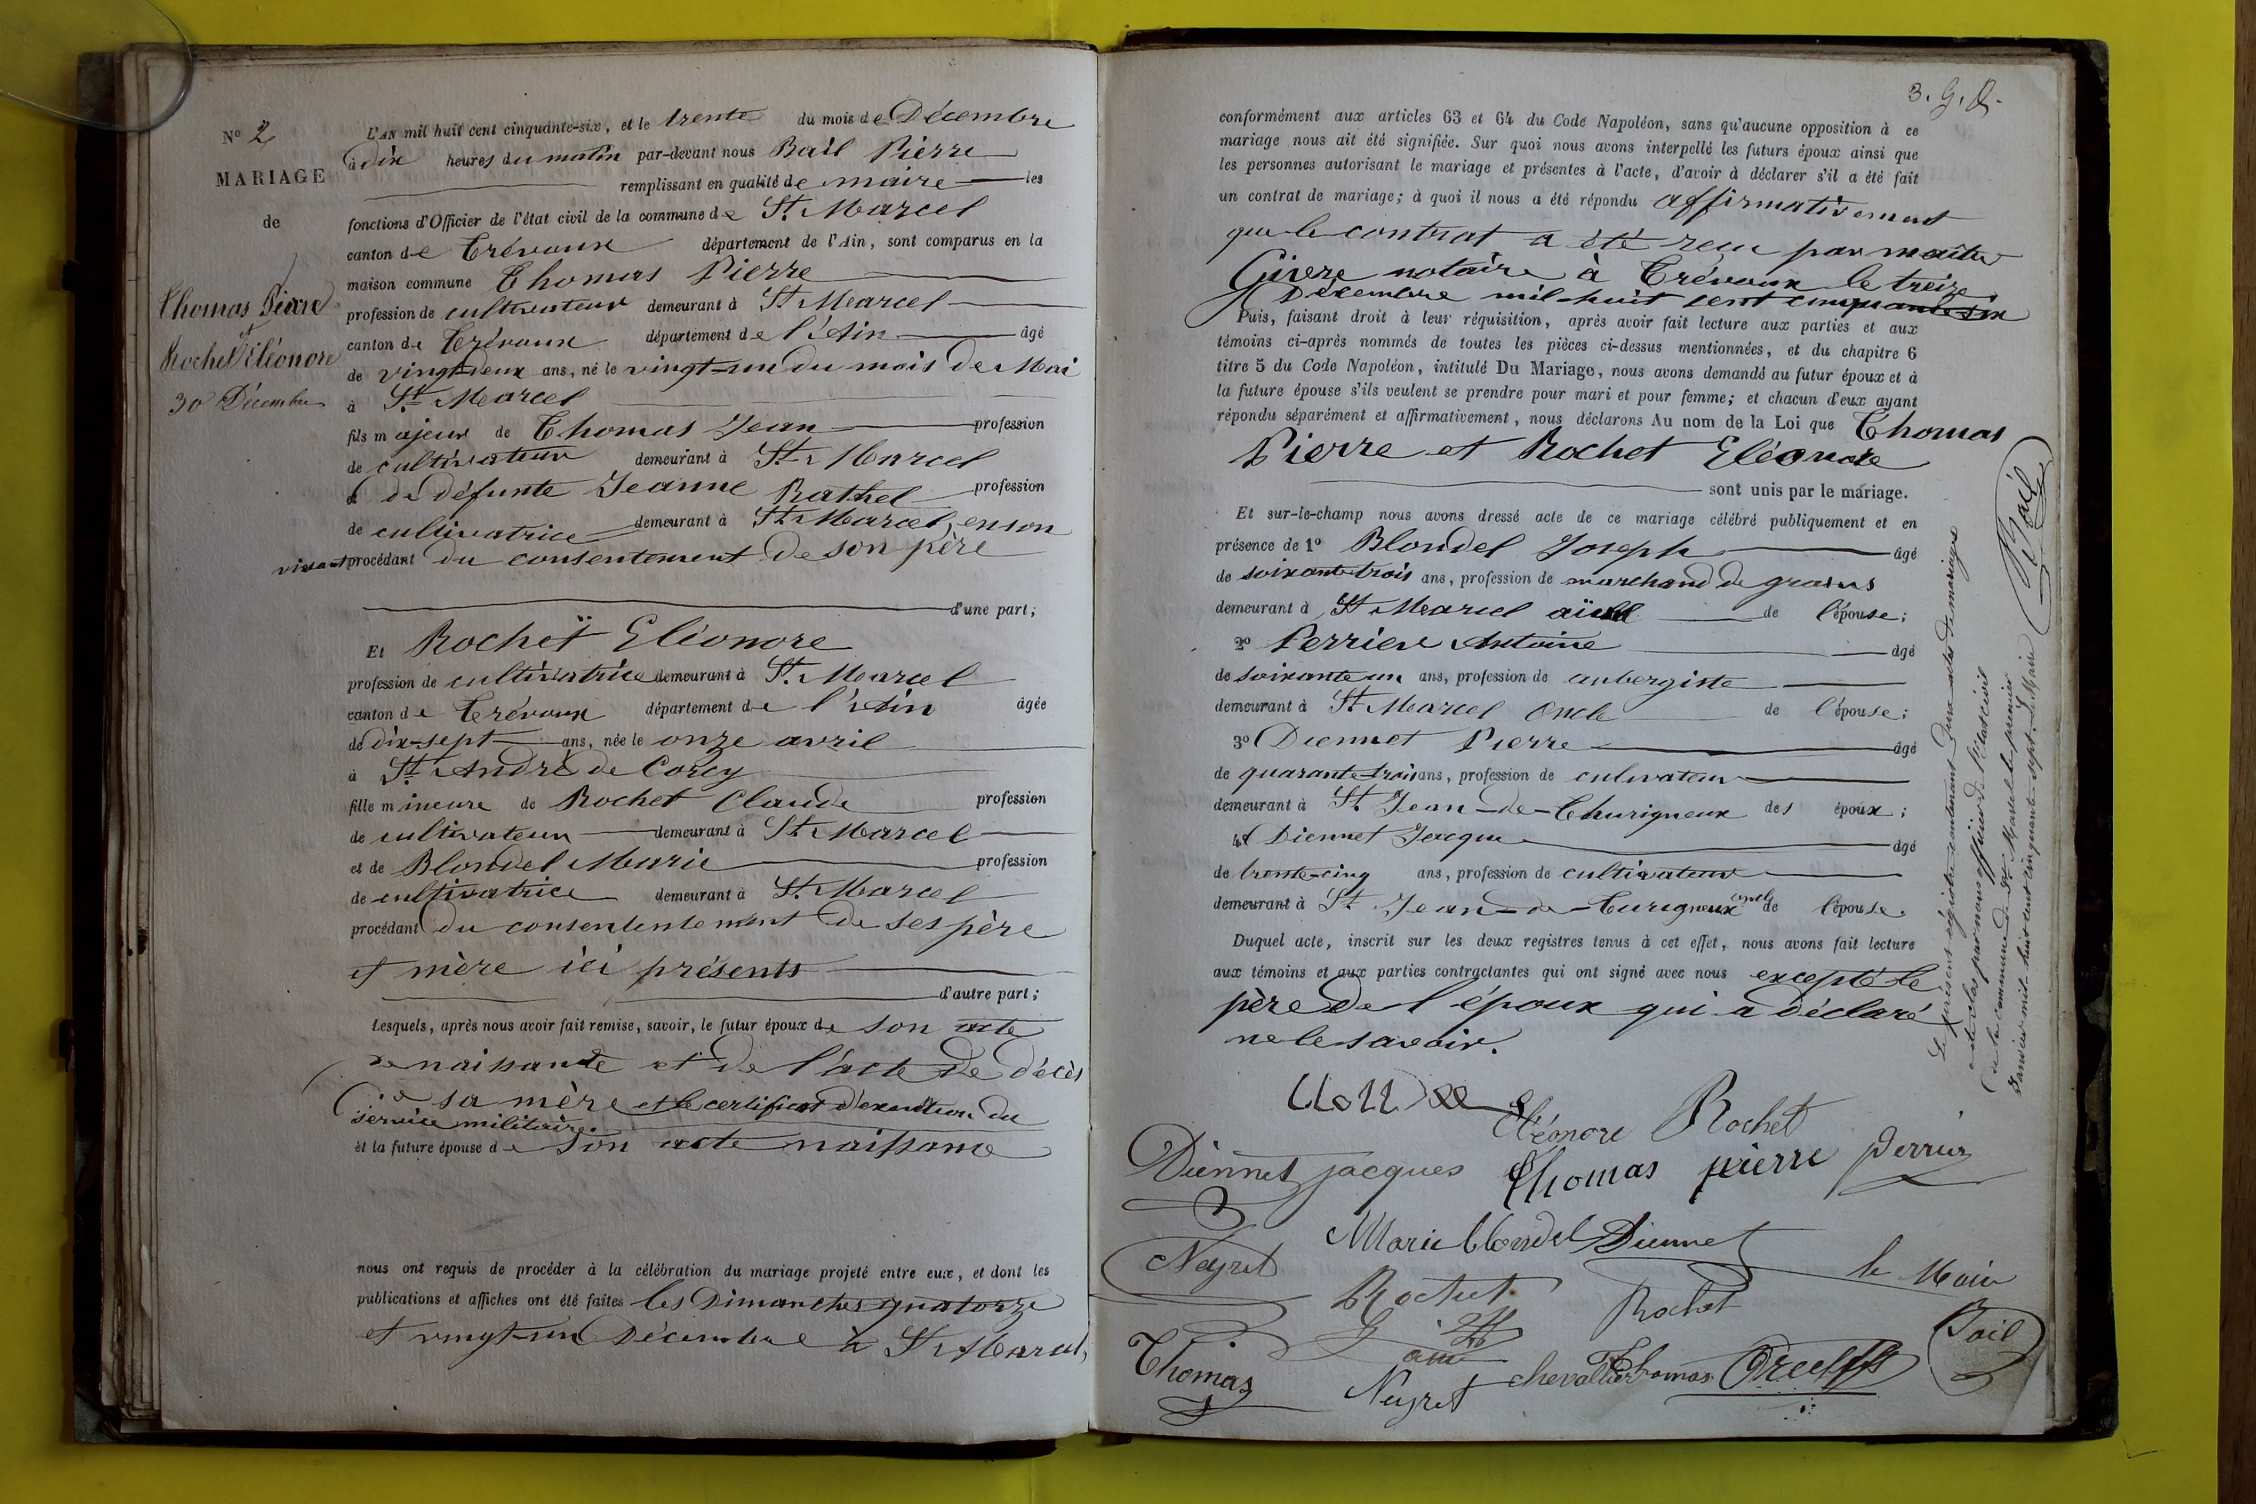 N° 2
MARIAGE
de
Thomas Pierre
et
Rochet Eléonore
30 Décembre
L'AN mil huit cent cinquante-six, et le trente du mois de Décembre
à dix heures du matin par-devant nous Bail Pierre
remplissant en qualité de maire les
fonctions d'Officier de l'état civil de la commune de St. Marcel
canton de Trévoux département de l'Ain, sont comparus en la
maison commune Thomas Pierre
profession de cultivateur demeurant à St Marcel
canton de Trévoux département de l'Ain âgé
de vingt-deux ans, né le vingt-un du mois de Mai
à St. Marcel
fils majeur de Thomas Jean profession
de cultivateur demeurant à St. Marcel
de défunte Jeanne Rathel profession
de cultivatrice demeurant à St. Marcel, en son
vivant procédant du consentement de son père
d'une part;
Et Rochet Eléonore
profession de cultivatrice demeurant à St. Marcel
canton de Trévoux département de l'Ain âgée
de dix-sept ans, née le onze avril
à St. André de Corcy
fille mineure de Rochet Claude profession
de cultivateur demeurant à St. Marcel
et de Blondel Marie profession
de cultivatrice demeurant à St. Marcel
procédant du consententement de ses père
et mère ici présents
d'autre part;
Lesquels, après nous avoir fait remise, savoir, le futur époux de son acte
de naissance et de l'acte de décès
de sa mère et le certificat d'exemtion du
service militaire.
et la future épouse de son acte naissance
nous ont requis de procéder à la célébration du mariage projeté entre eux, et dont les
publications et affiches ont été faites les Dimanches quatorze
et vingt-un Décembre à St Marcel,
3. G. D.
conformément aux articles 63 et 64 du Code Napoléon, sans qu'aucune opposition à ce
mariage nous ait été signifiée. Sur quoi nous avons interpellé les futurs époux ainsi que
les personnes autorisant le mariage et présentes à l'acte, d'avoir à déclarer s'il a été fait
un contrat de mariage; à quoi il nous a été répondu affirmativement
que le contrat a été reçu par maître
notaire à Trévoux le treize
Décembre mil-huit cent cinquante-six
Puis, faisant droit à leur réquisition, après avoir fait lecture aux parties et aux
témoins ci-après nommés de toutes les pièces ci-dessus mentionnées, et du chapitre 6
titre 5 du Code Napoléon, intitulé Du Mariage, nous avons demandé au futur époux et à
la future épouse s'ils veulent se prendre pour mari et pour femme; et chacun d'eux ayant
répondu séparément et affirmativement, nous déclarons Au nom de la Loi que Thomas
Pierre et Rochet Eléonore
sont unis par le mariage.
Et sur-le-champ nous avons dressé acte de ce mariage célébré publiquement et en
présence de 1° Blondel Joseph âgé
de soixante-trois ans, profession de marchand de grains
demeurant à St Marcel aïeul de l'épouse;
2° Perrier Antoine âgé
de soixante un ans, profession de aubergiste
demeurant à St Marcel oncle de l'épouse;
3° Diennet Pierre âgé
de quarante-trois ans, profession de cultivateur
demeurant à St. Jean-de-Thurigneux des époux;
4° Diennet Jacque âgé
de trente-cinq ans, profession de cultivateur
demeurant à St. Jean-de-Turigneux oncle de l'épouse.
Duquel acte, inscrit sur les deux registres tenus à cet effet, nous avons fait lecture
aux témoins et aux parties contractantes qui ont signé avec nous excepté le
père de l'époux qui a déclaré
ne le savoir.
Eléonore Rochet
Diennet jacques Thomas pierre Perrier
Marie blondel Diennet
Neyret le Maire
Rochet Rochet
Bail
Thomas Neyret chevallier Thomas
Le présent régistre contenant deux actes de mariages
a été clos par nous officier de l'état civil
de la commune de St. Marcel le premier
Janvier mil-huit cent cinquante-sept. Le Maire
Bail